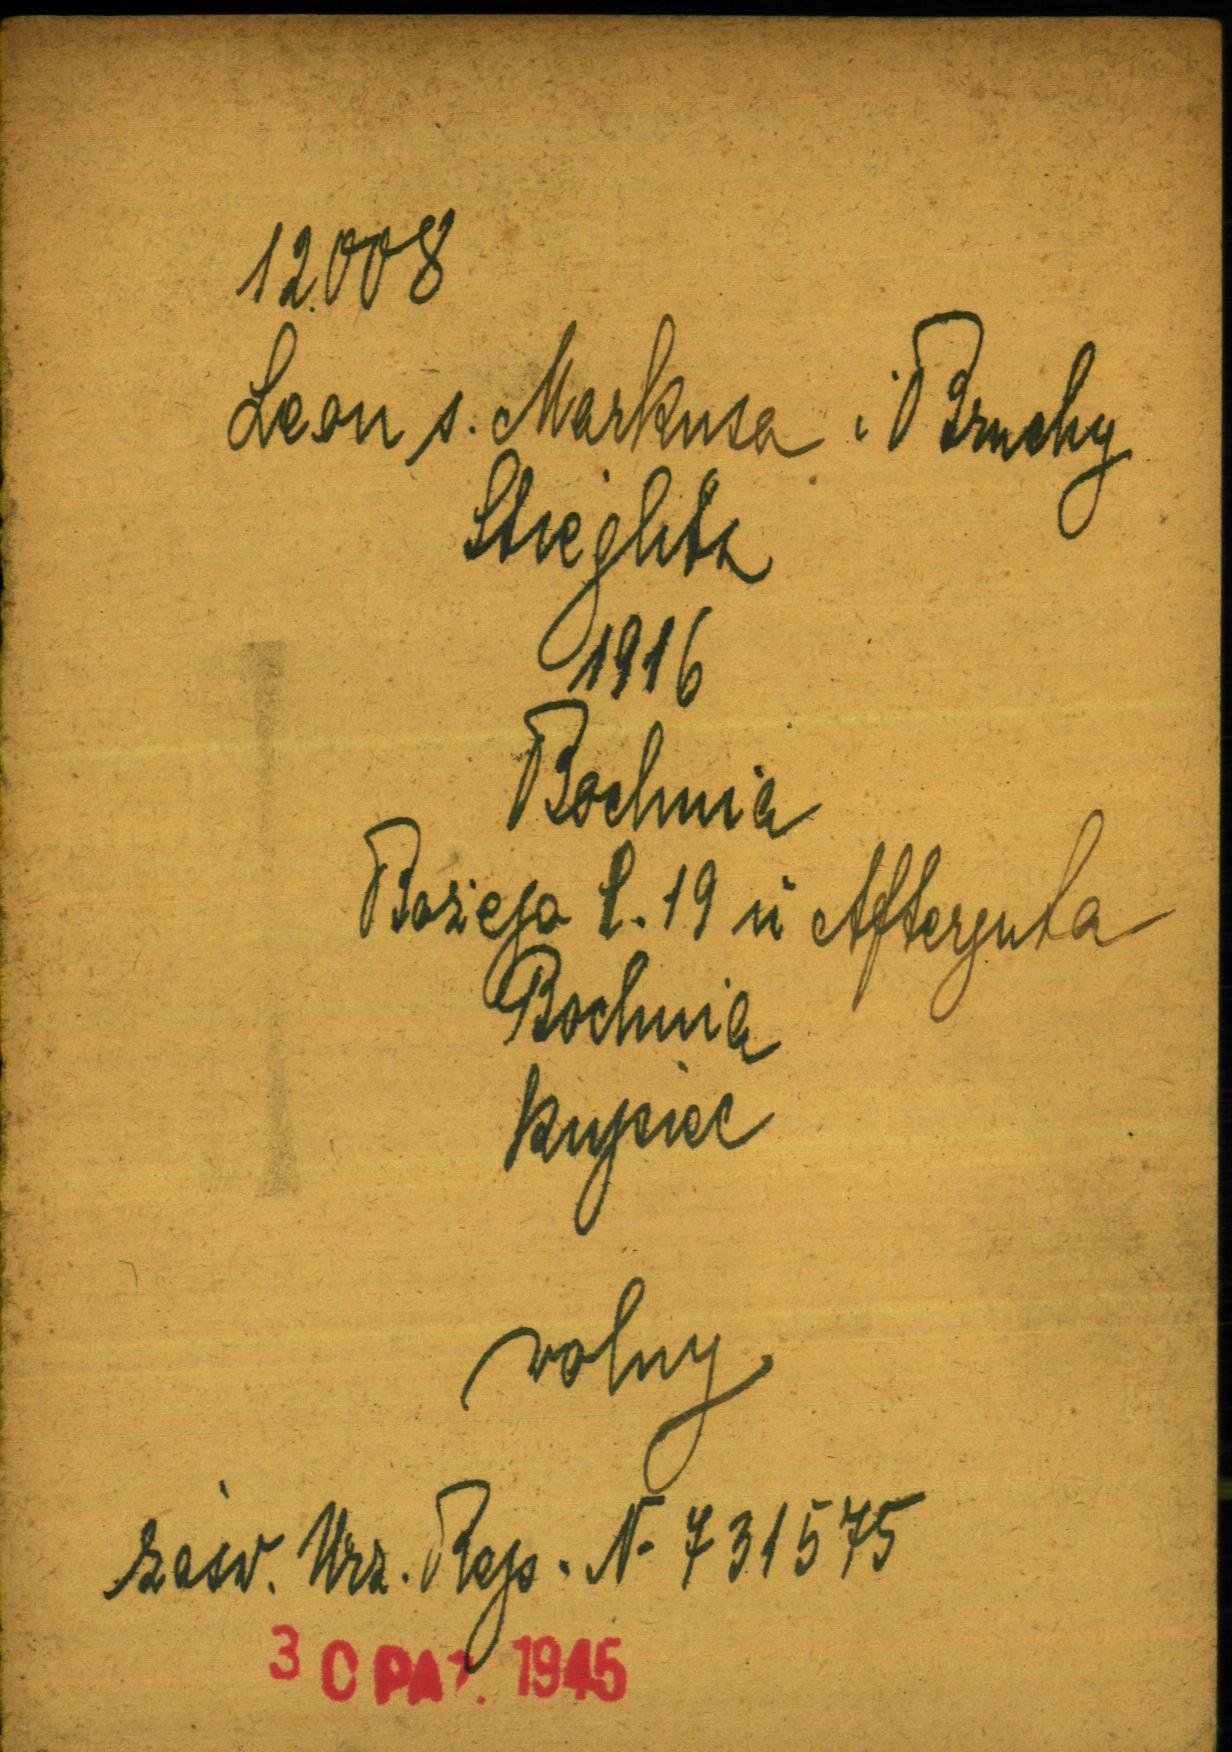 12.008
Leon s. Markusa i Bruchy
Stieglitz
1916
Bochnia
Bożego C. 19 u Afterguta
Bochnia
kupiec
wolny
zaśw. Urz. Rep. N- 731575
30 PAŹ. 1945